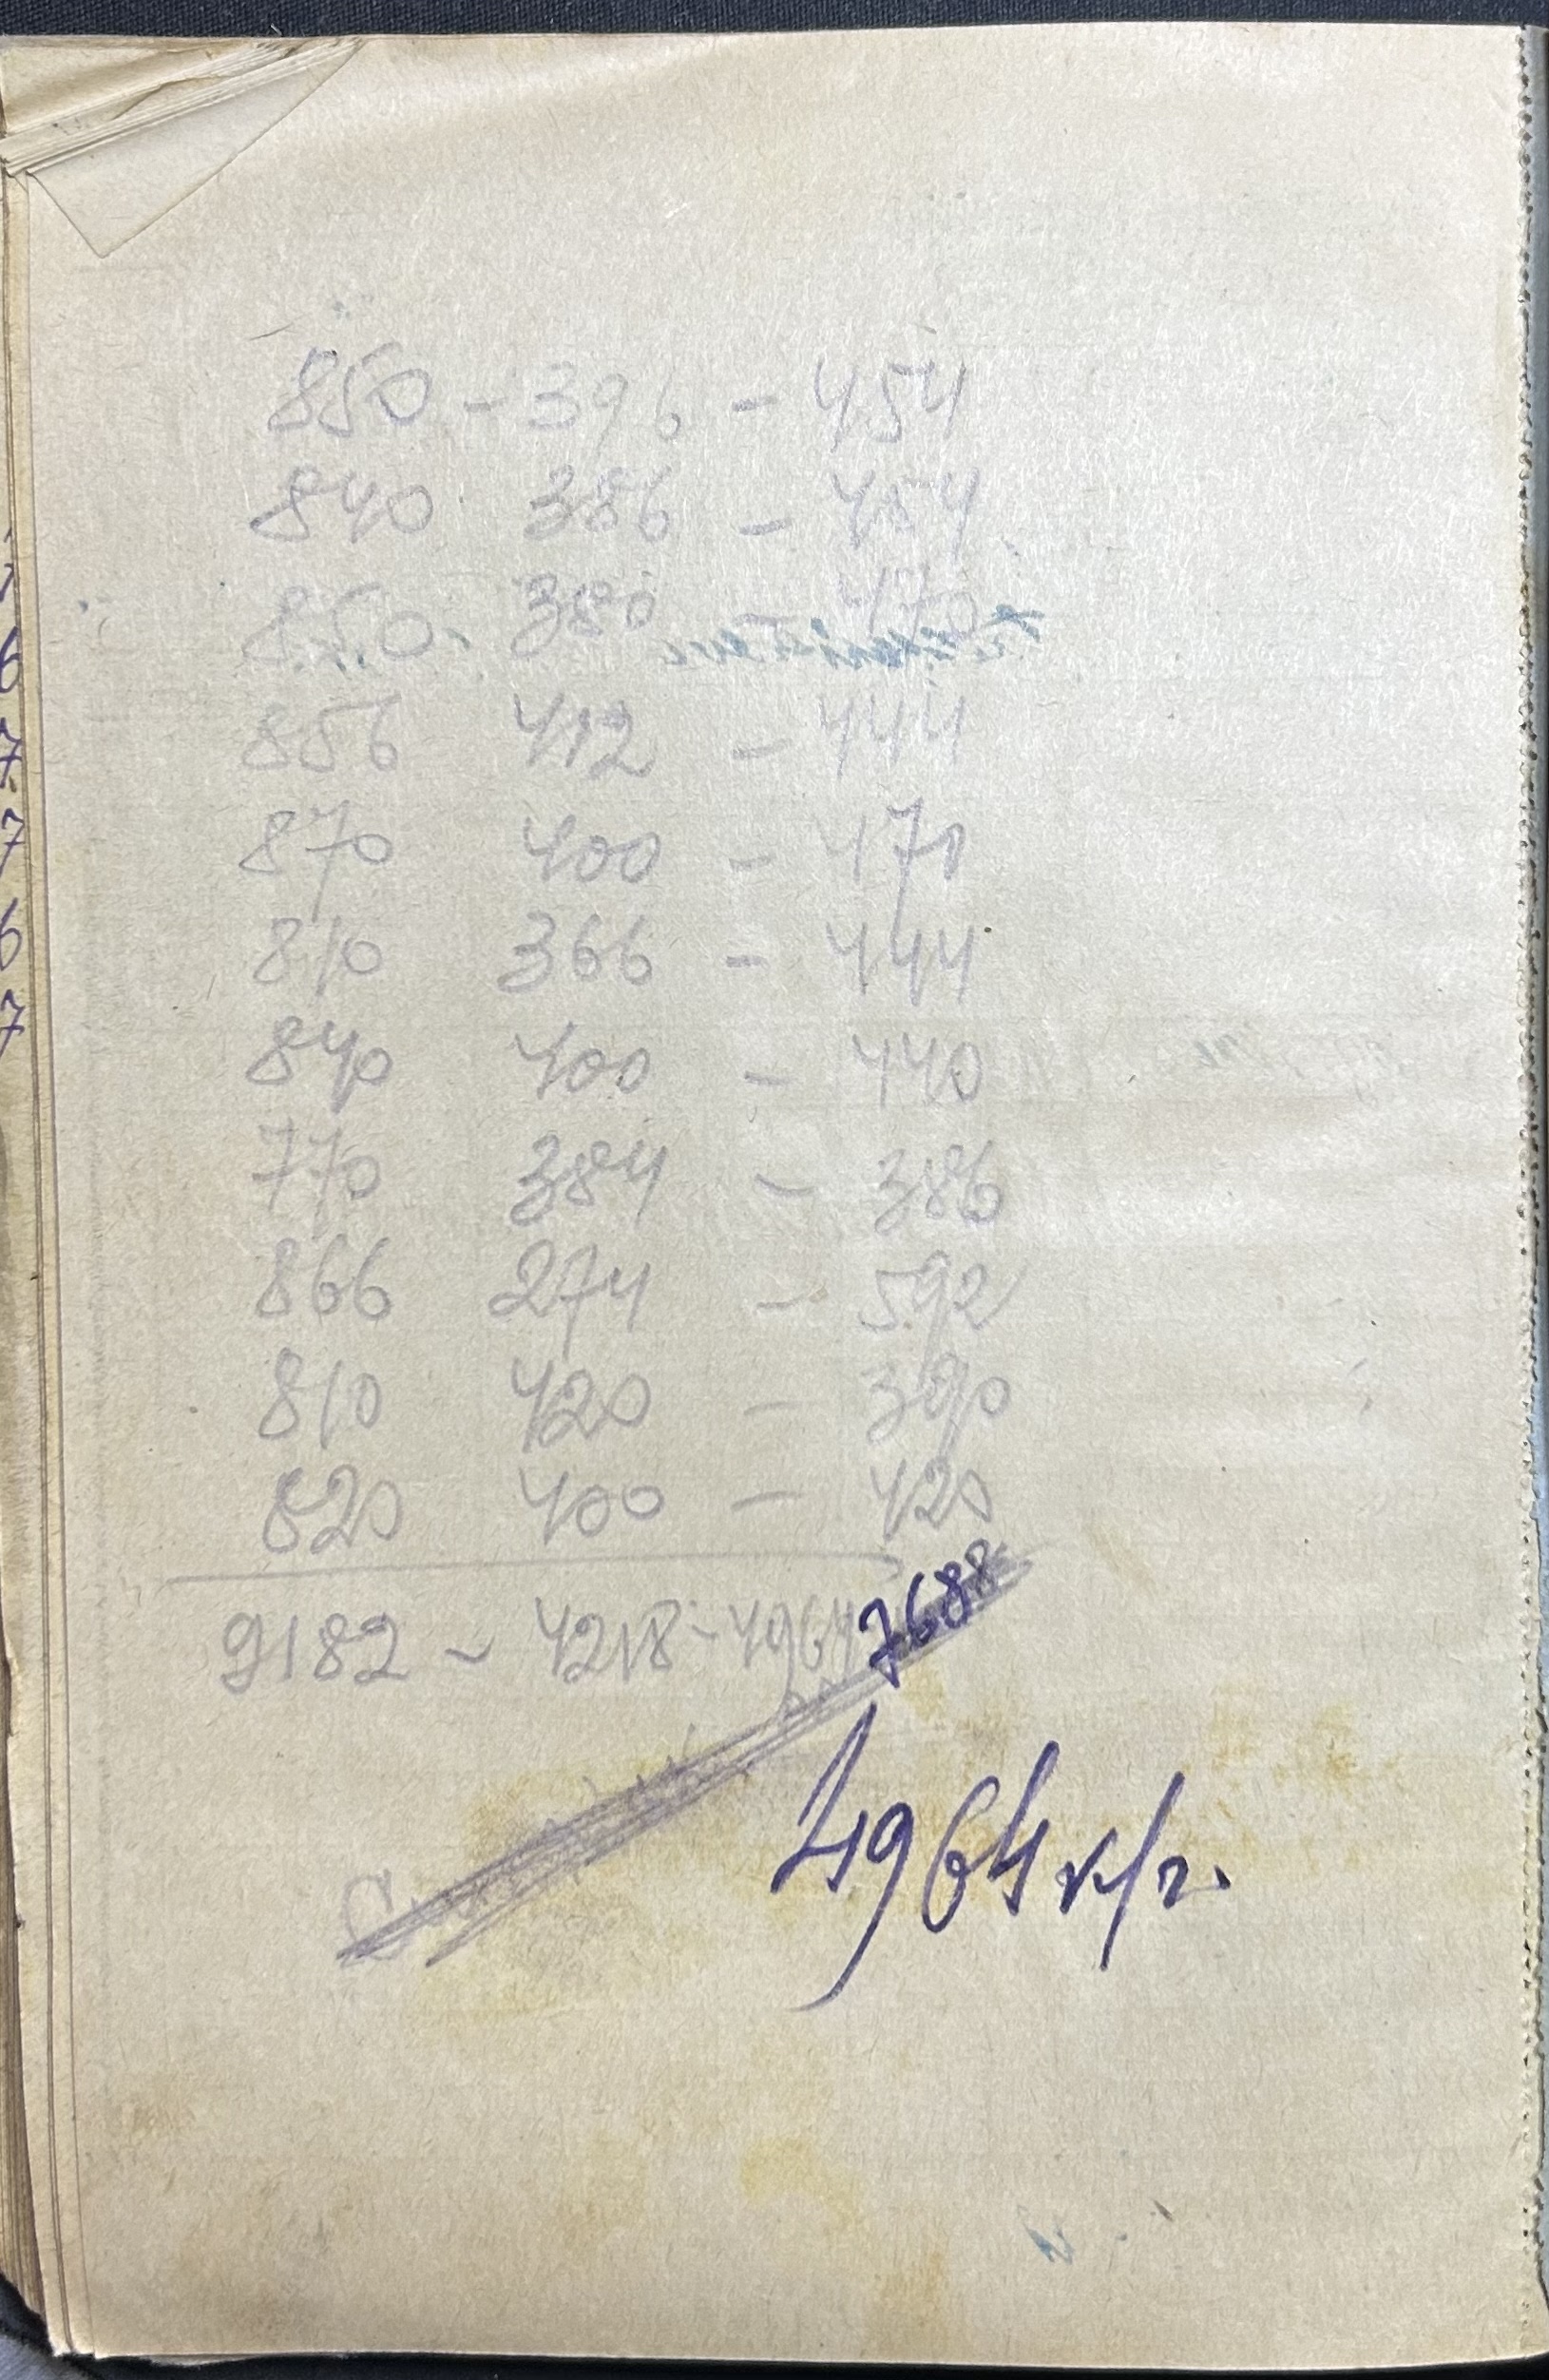 850 - 396 - 454
840 386 - 454
850 380 - 470
856 412 - 444
870 400 - 470
810 366 - 444
840 400 - 440
770 384 - 386
866 274 - 592
810 420 - 390
820 400 - 420
9182 - 4218 - 4964
7688
4964 к/г.